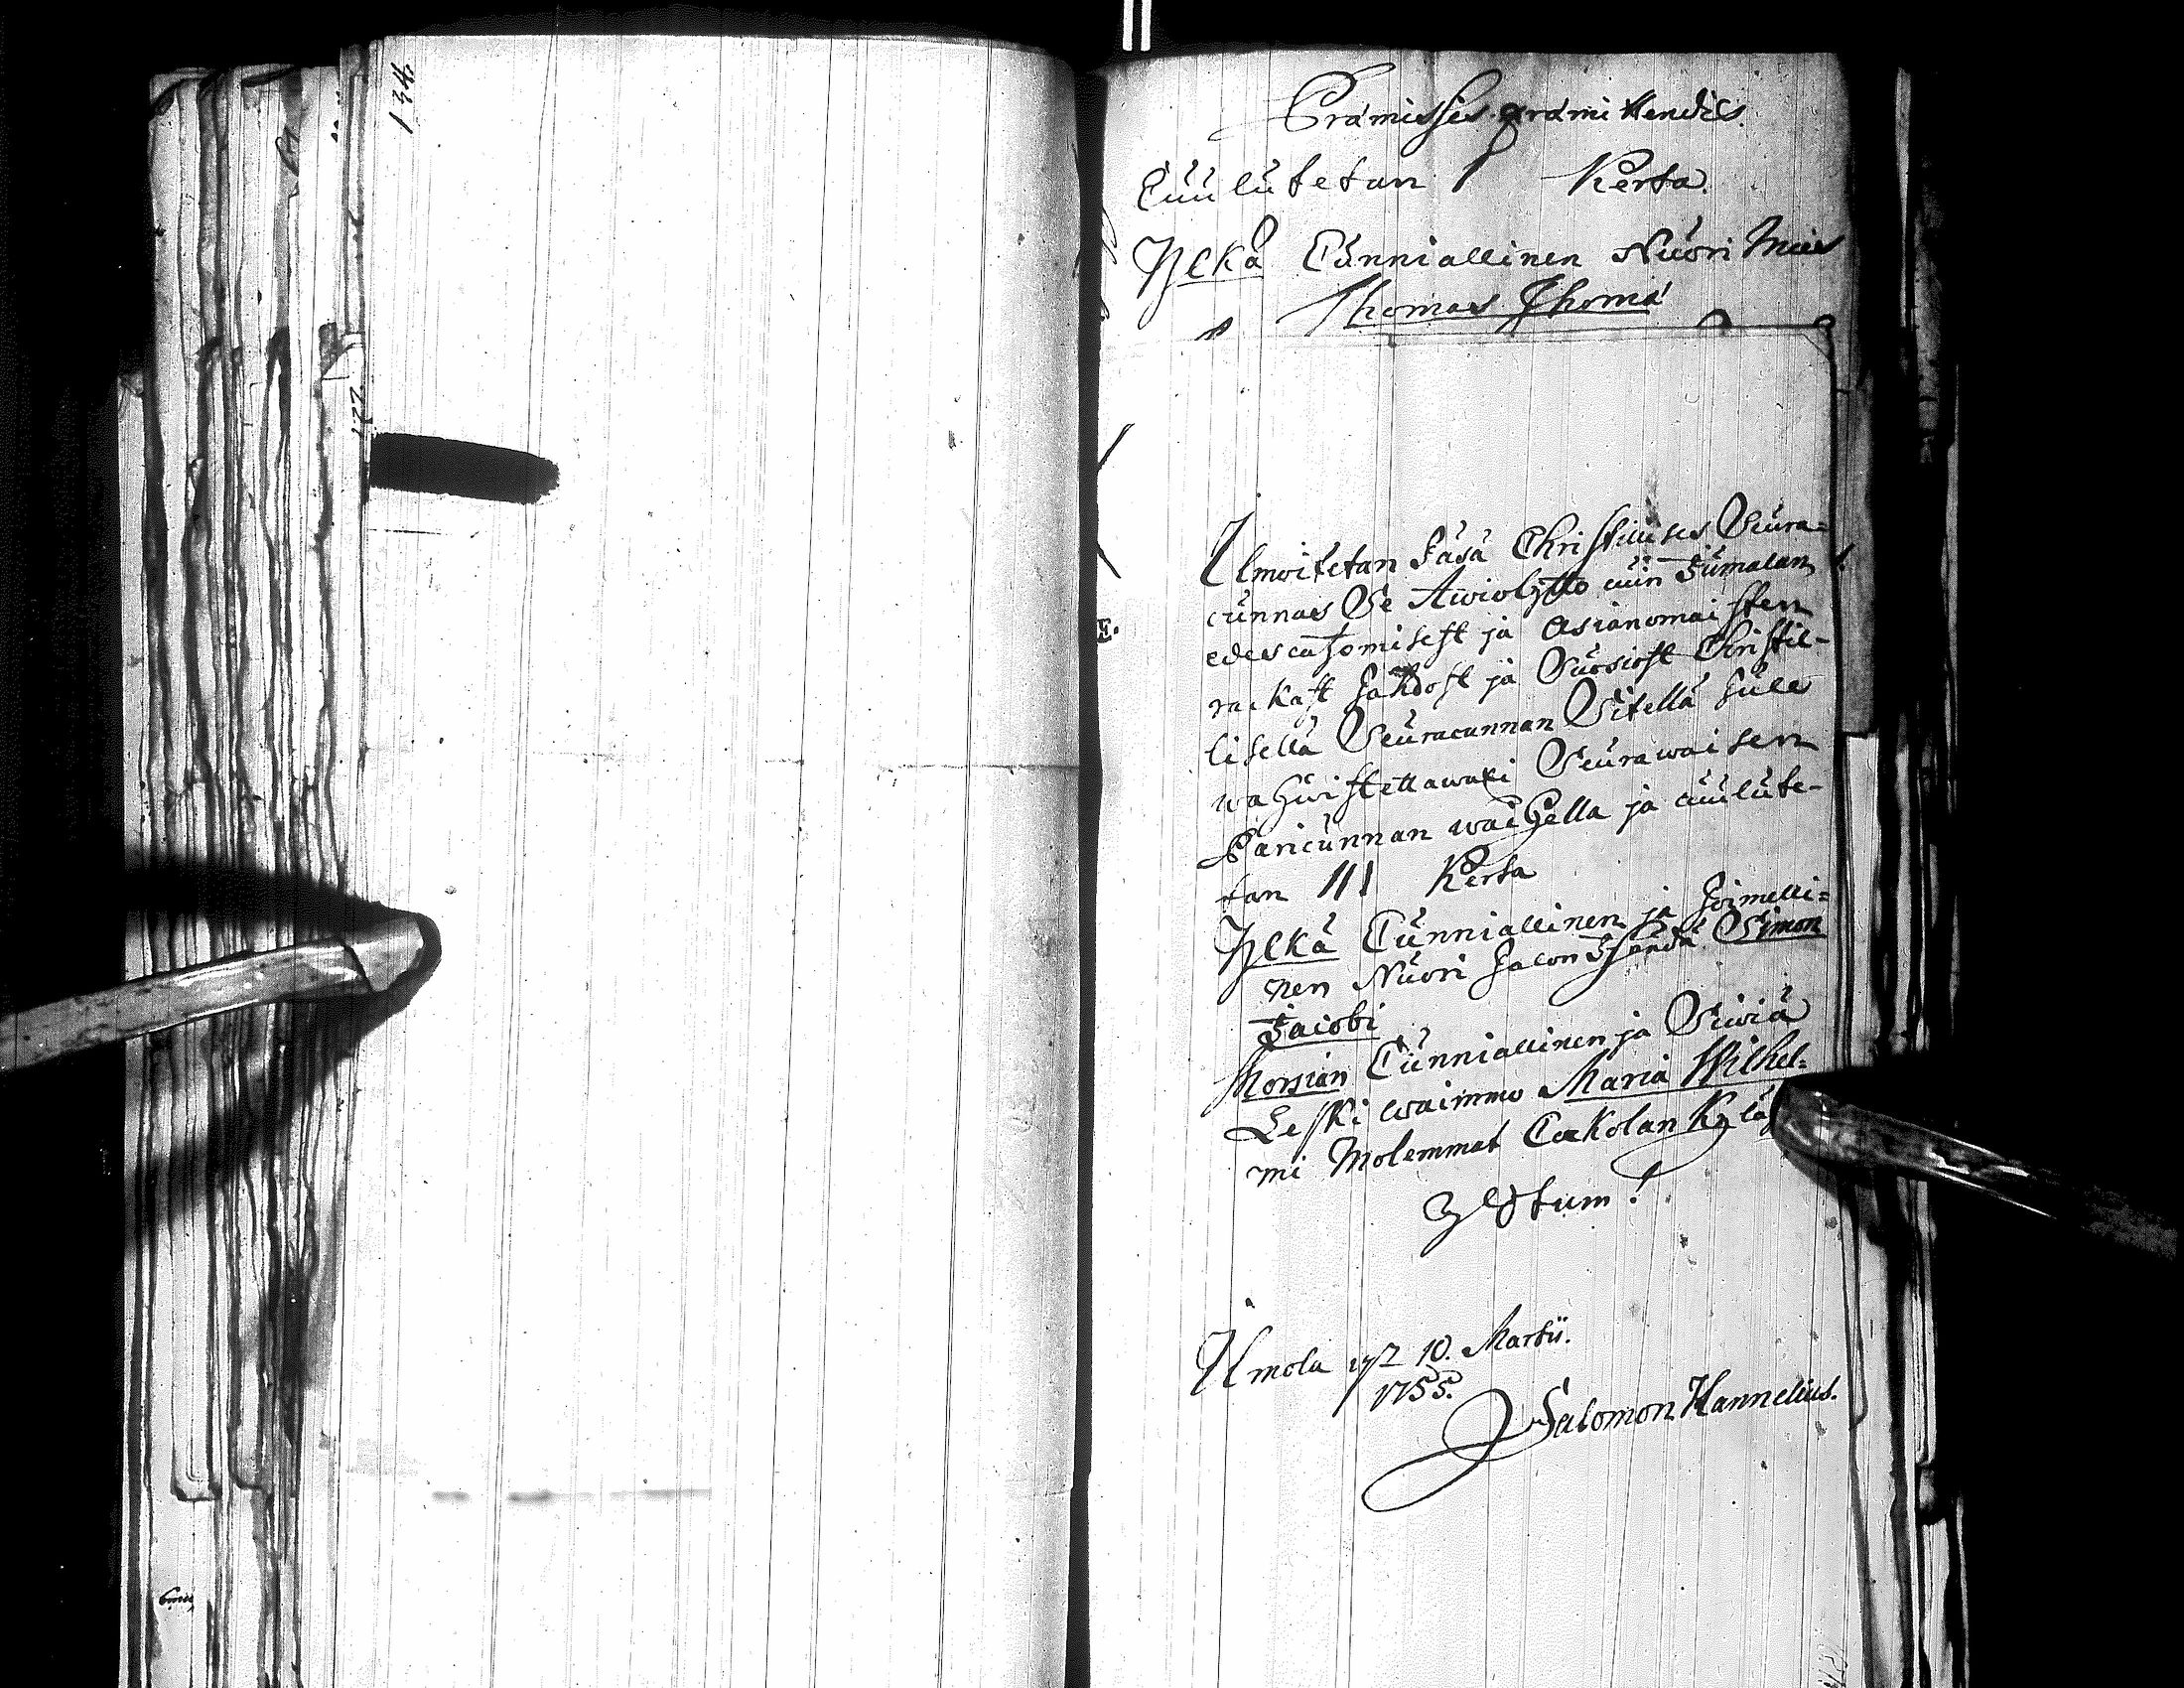 134.
127
Præmissis præmittendis.
Cuulutetan I Kerta.
Ylkä Cunniallinen Nuori Mies
Thomas Thomæ
Ilmoitetan Täsä Christituises Seura=
cunnas Se Awiolijtto cuin Jumalan
edescatzomisest ja Asianomaisten
rackast Tahdost ja Suosiost Christil-
lisellä Seuracunnan Sitellä Tule
wahwistettawaxi Seurawaisen
Pariscunnan waihella ja cuulute-
tan III Kerta
Ylkä Cunniallinen ja Toimelli=
nen Nuori Talon Isändä Simon
Jacobi
Morsian Cunniallinen ja Siwiä
Leski waimmo Maria Wilhel=
mi Molemmat Cockolan Kyläst
Ilmola 10. Martii.
1755.
Salomon Hannelius.